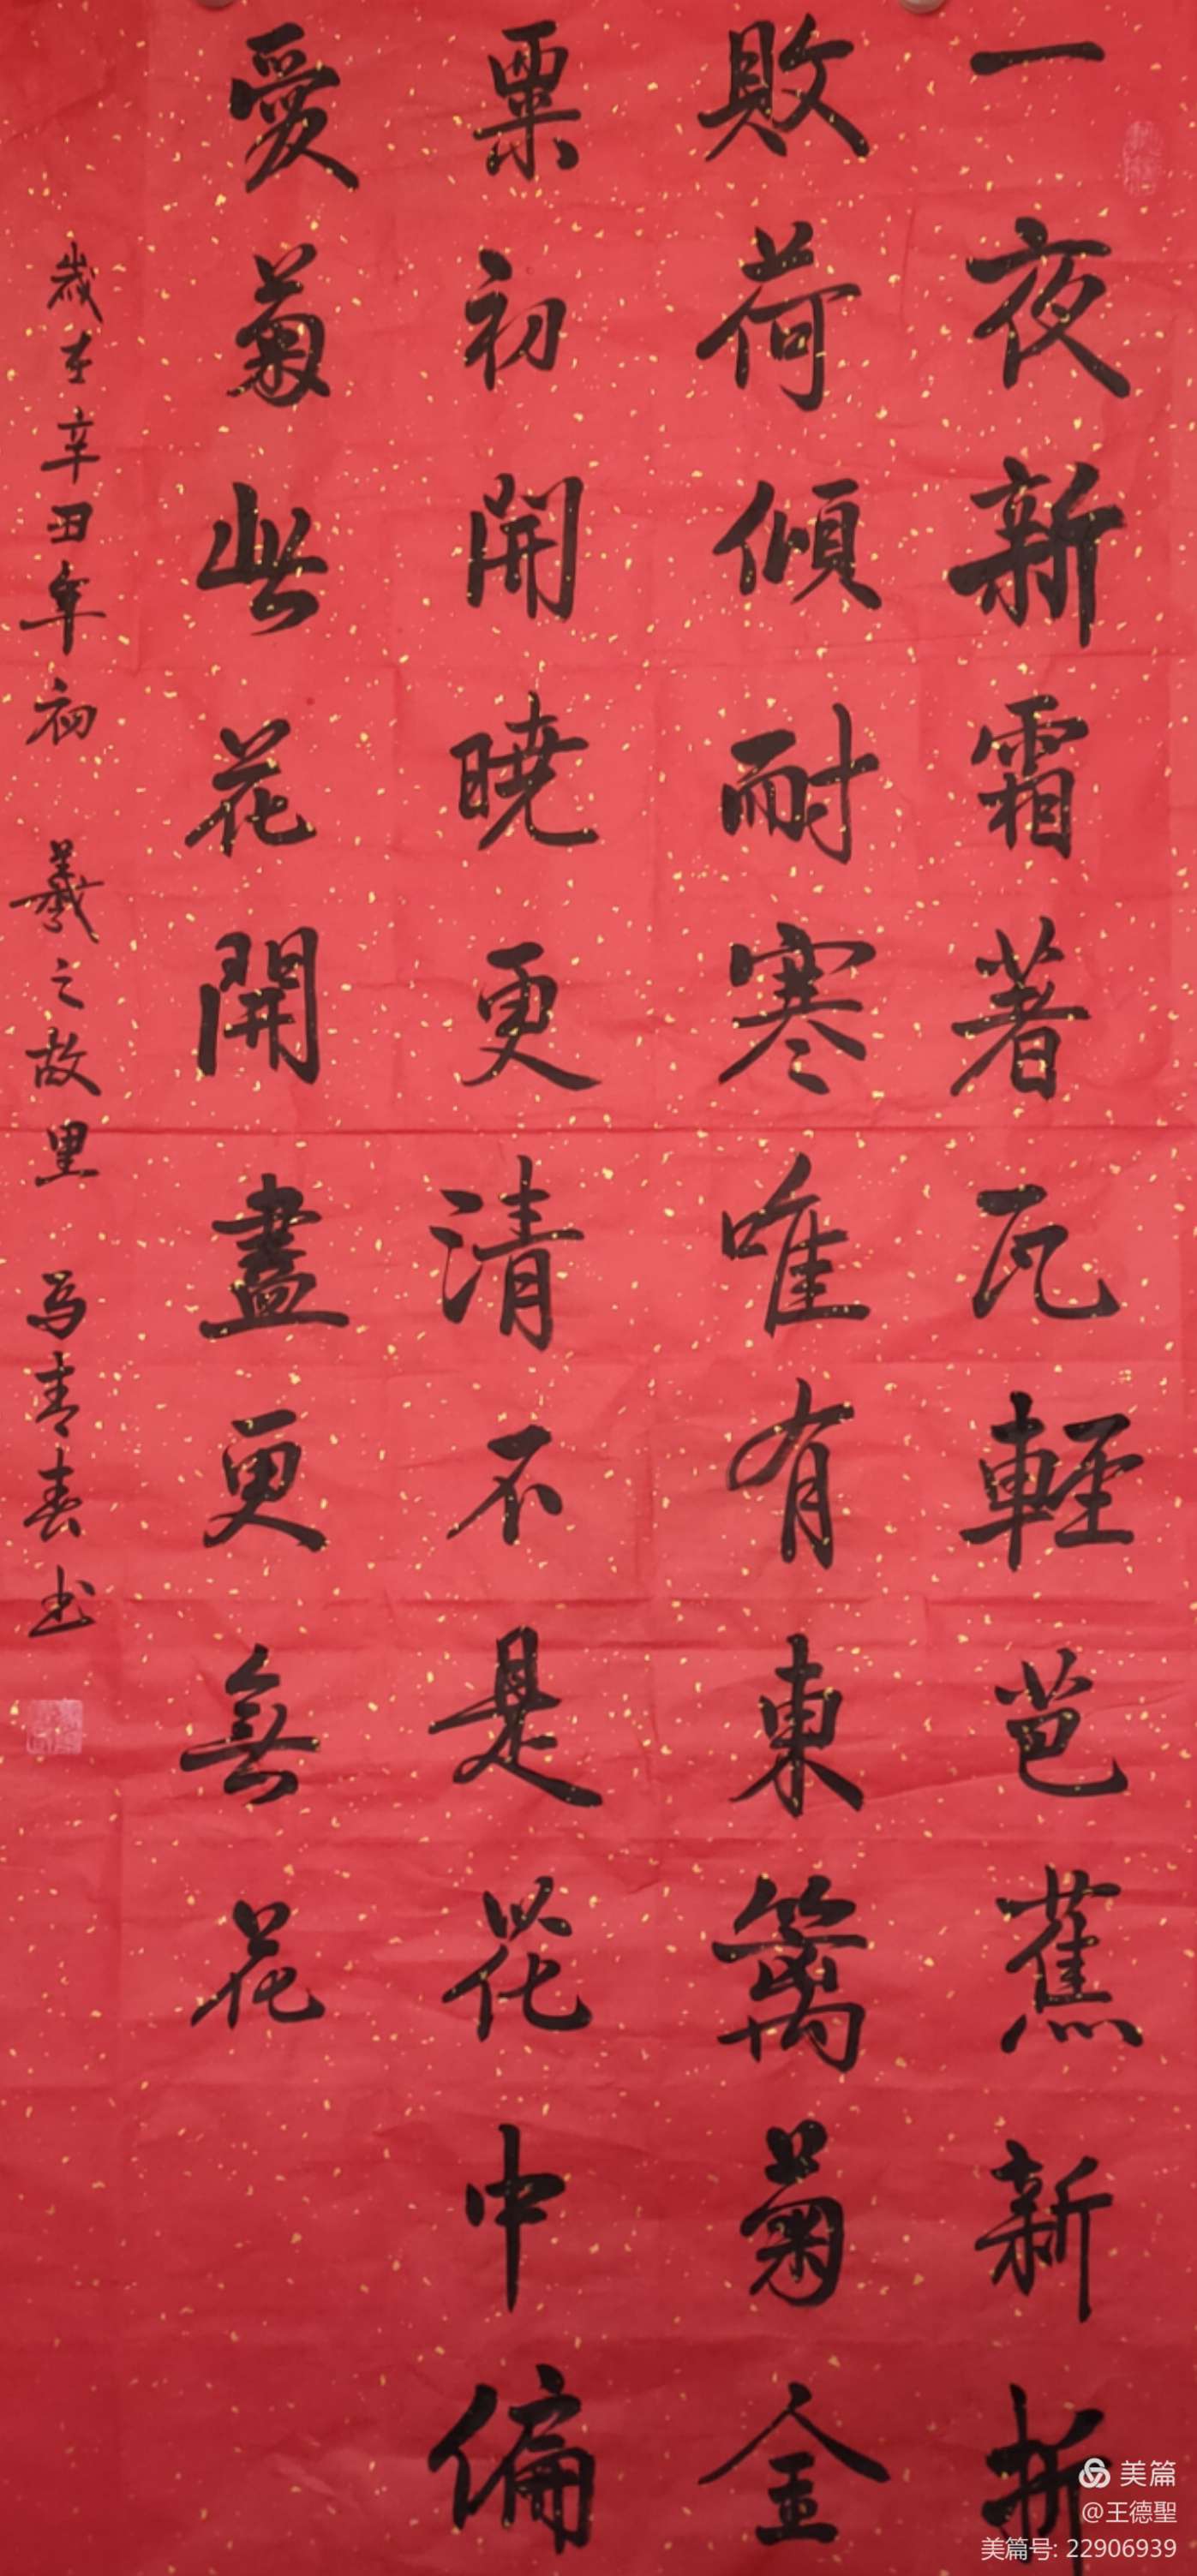 一夜新霜著瓦輕芭蕉新折
敗荷傾耐寒唯有東籬菊金
粟初開曉更清不是花中偏
愛菊此花開盡更無花
歲在辛丑年初 羲之故里 马青春书
美篇
@王德聖
美篇号: 22906939